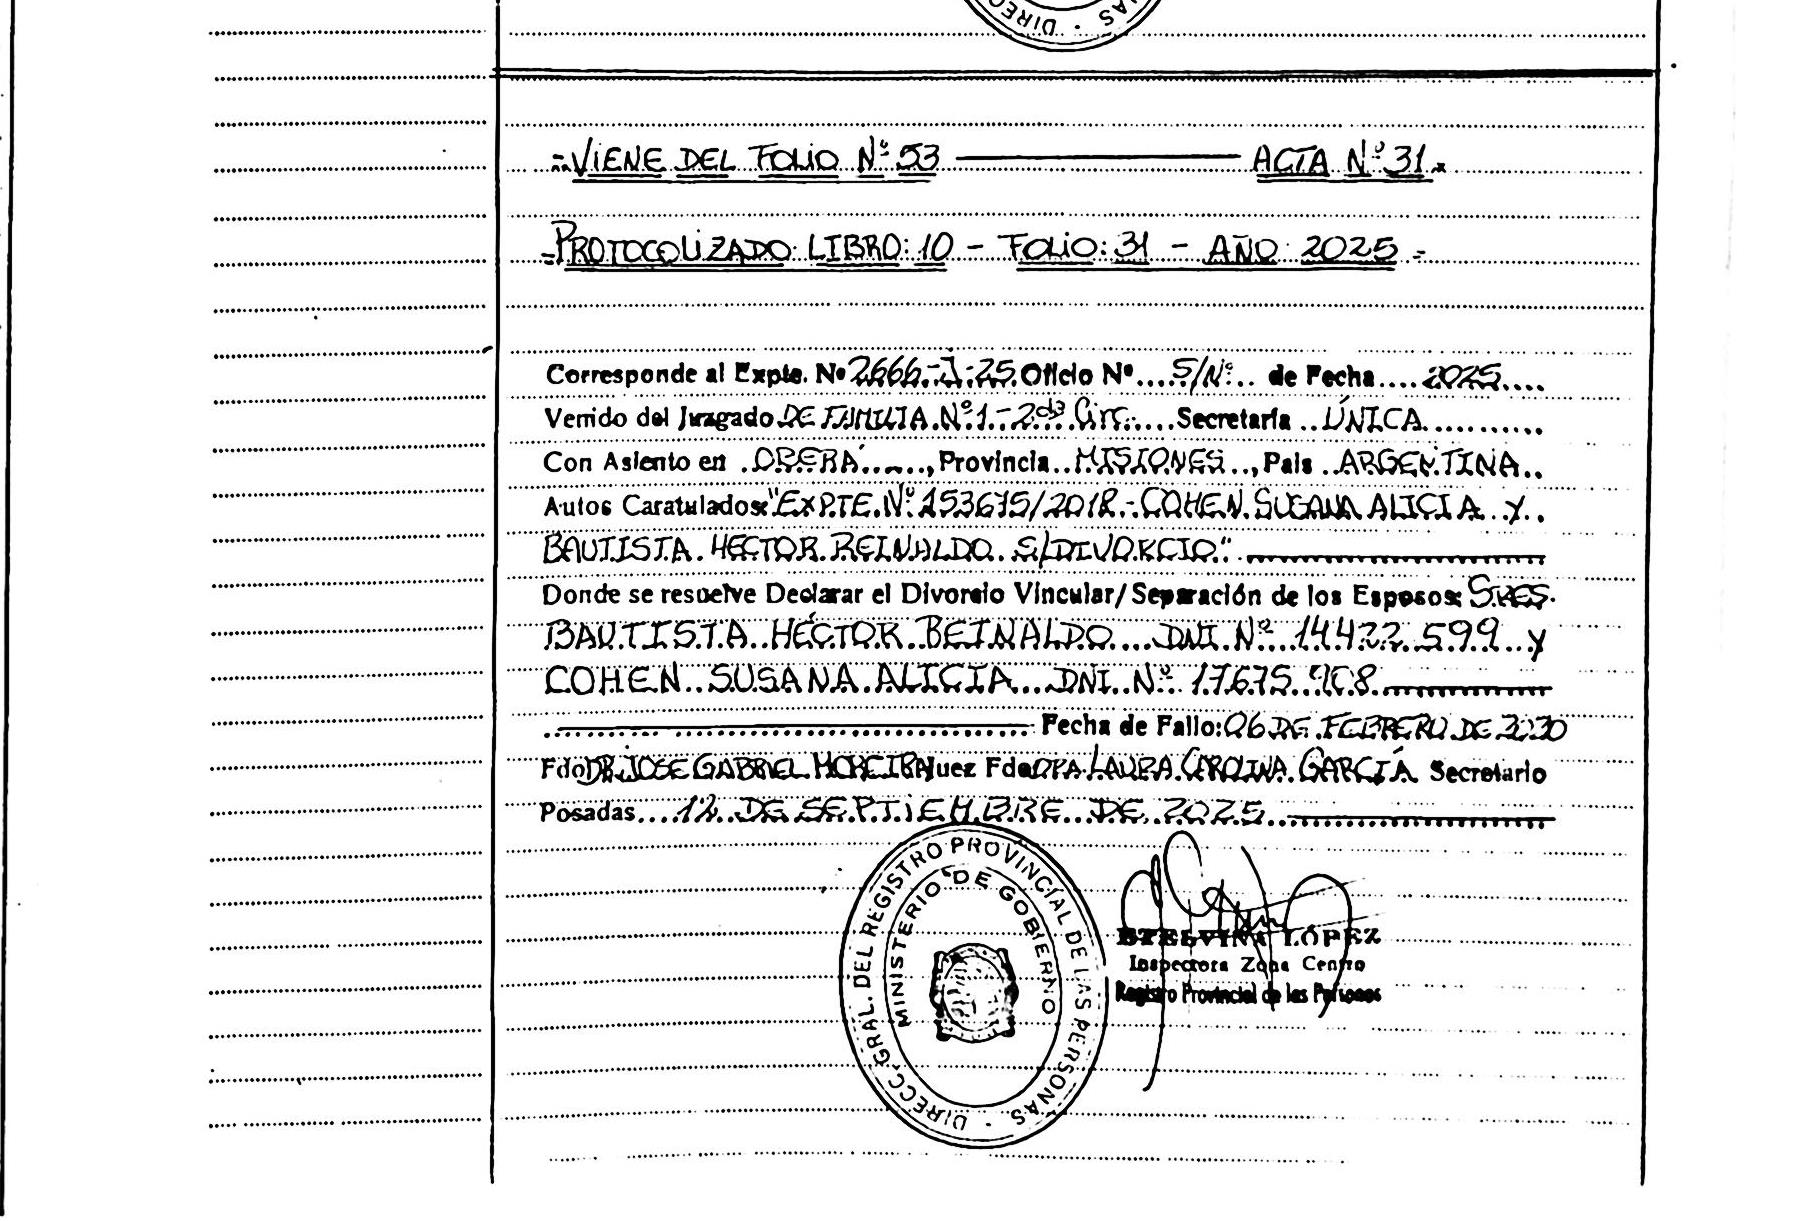 DIREC
NAS
=VIENE DEL FOLIO Nº 53 ACTA Nº 31=
=PROTOCOLIZADO LIBRO: 10 - FOLIO: 31 - AÑO 2025=
Corresponde al Expte. Nº 2666-J-25 Oficio Nº S/Nº de Fecha 2025
Venido del Juzgado DE FAMILIA Nº 1 - 2da Circ. Secretaría ÚNICA
Con Asiento en OBERÁ, Provincia MISIONES, País ARGENTINA
Autos Caratulados: "EXPTE. Nº 153675/2018 - COHEN SUSANA ALICIA Y
BAUTISTA HECTOR REINALDO S/DIVORCIO."
Donde se resuelve Declarar el Divorcio Vincular/Separación de los Esposos: SRES.
BAUTISTA HÉCTOR REINALDO DNI Nº 14.422.599 y
COHEN SUSANA ALICIA DNI Nº 17.675.908
Fecha de Fallo: 06 DE FEBRERO DE 2020
Fdo DR. JOSE GABRIEL MOREIRA Juez Fdo DRA. LAURA CAROLINA GARCÍA Secretario
Posadas 12 DE SEPTIEMBRE DE 2025
DIRECC. GRAL. DEL REGISTRO PROVINCIAL DE LAS PERSONAS
MINISTERIO DE GOBIERNO
ETELVINA LÓPEZ
Inspectora Zona Centro
Registro Provincial de las Personas